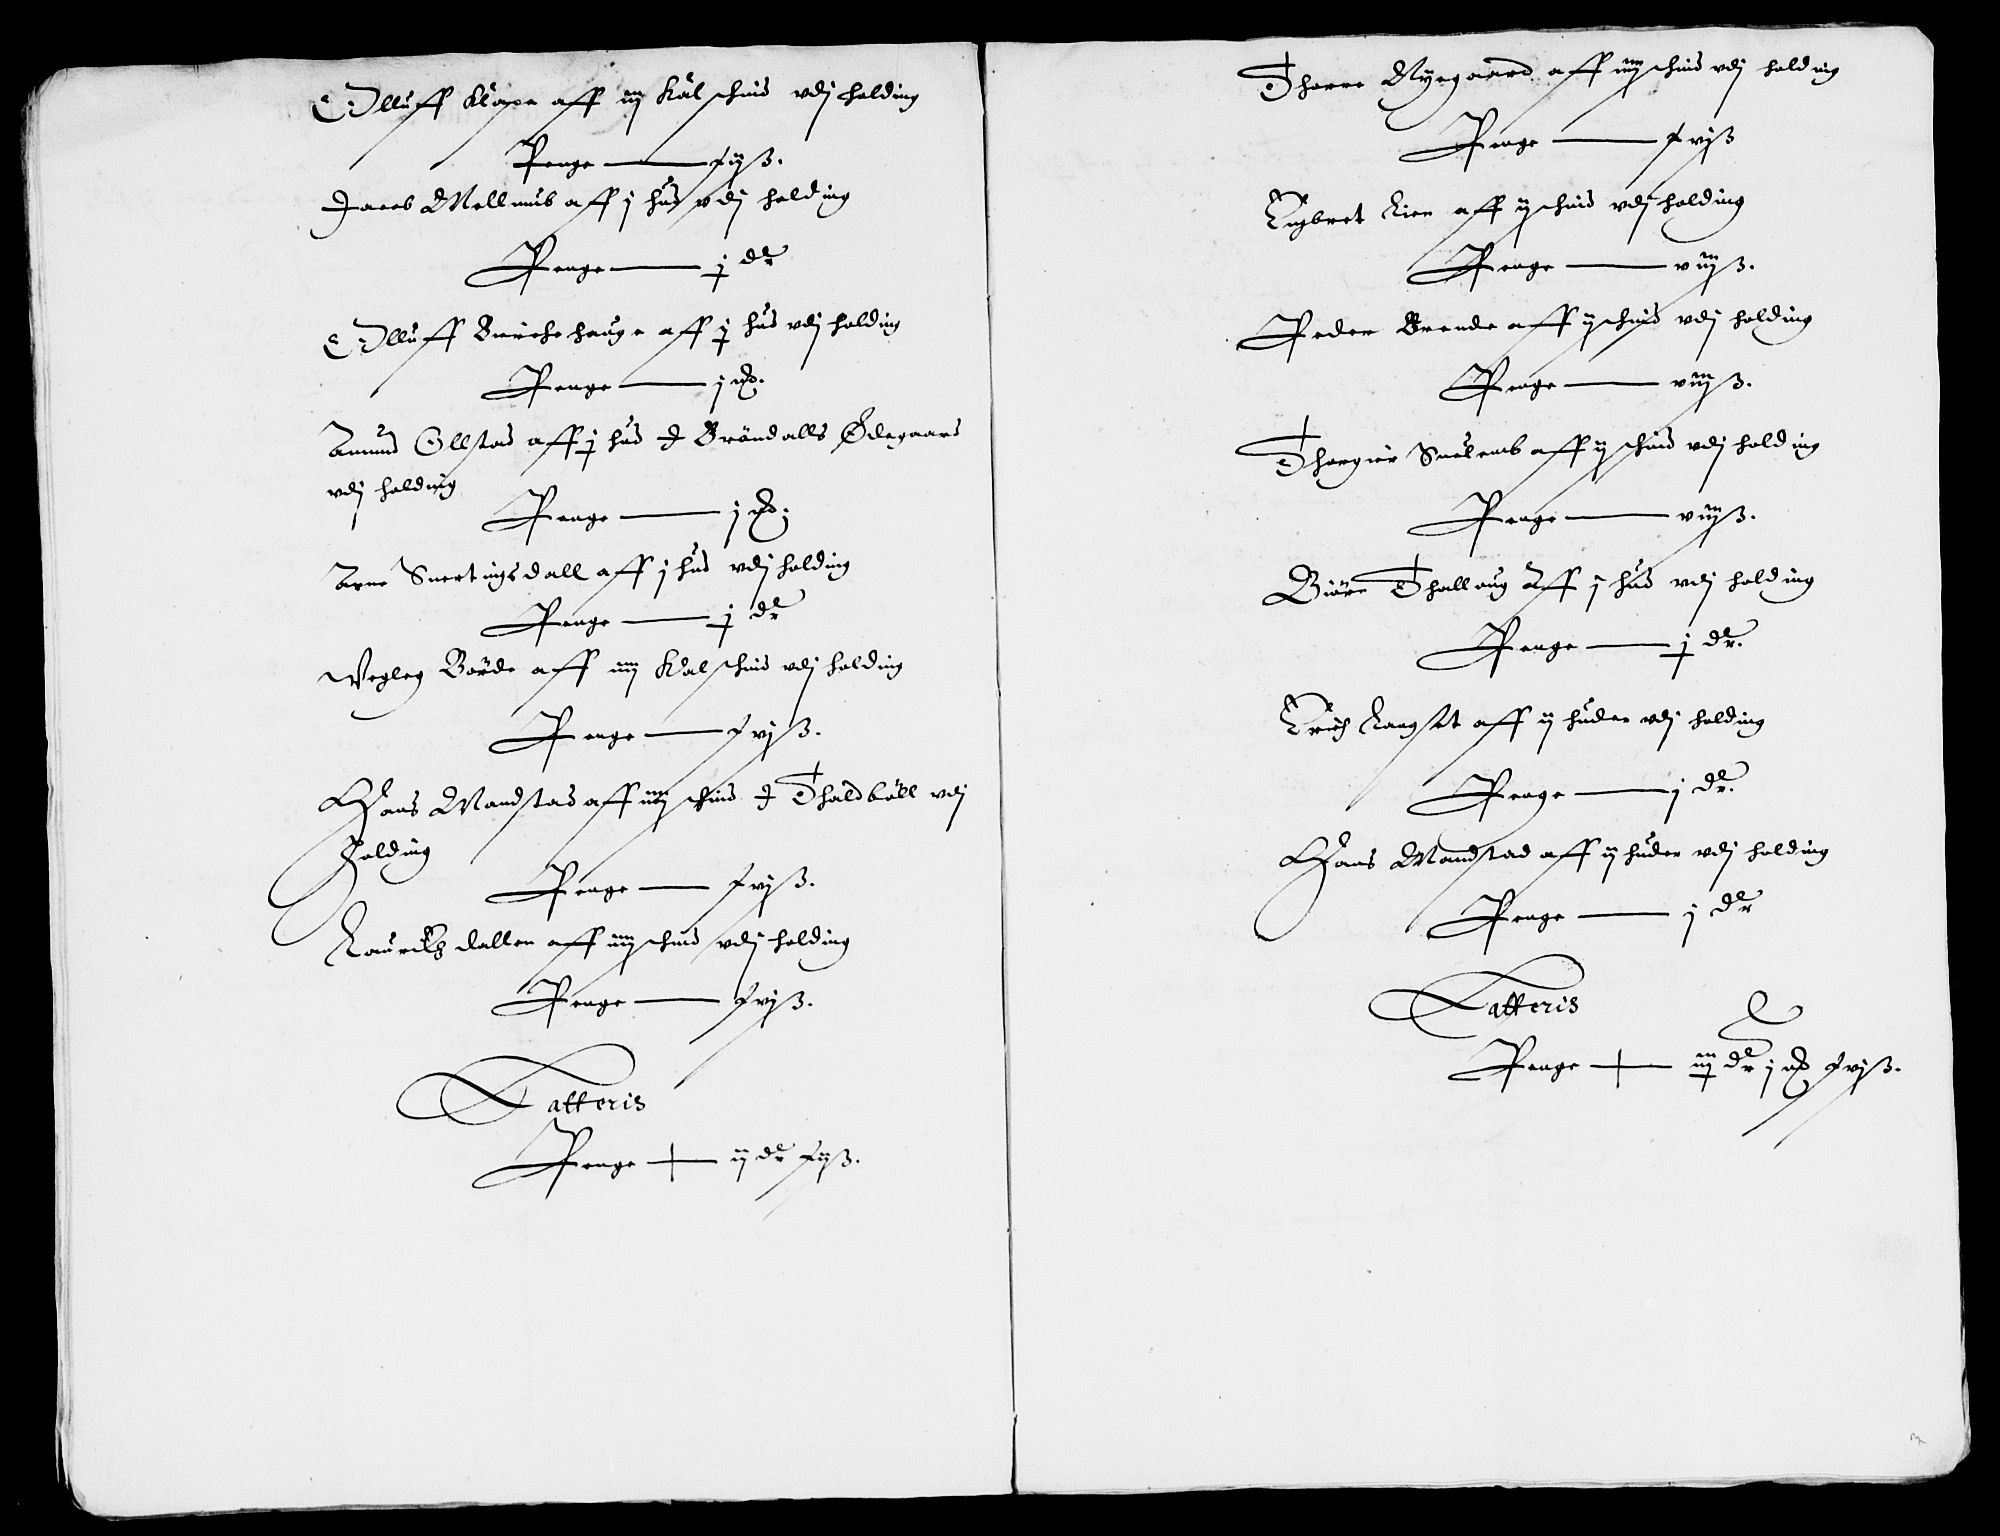 Olluff Klope aff iij Kalschind vdj holding
Penge — fijß.
Jacob Mellumb aff j hud vdj holding
Penge — j dr
Olluff Birchehauge aff j hud vdj holding
Penge — j mk.
Amund Ollstad aff j hud J Bröndalls Ødegaard
vdj holding
Penge — j mk.
Arne Suertingsdall aff j hud vdj holding
Penge — j dr
Wegleg Börde aff iiij Kalschind vdj holding
Penge — fvjß.
Hans Mandstad aff iiij schind J Thaldböll vdj
holding
Penge — fvjß.
Lauritz dallen aff iiij schind vdj holding
Penge — fvjß.
Latteris
Penge — ij dr fijß.
Thorre Nyegaard aff iiij schind vdj holding
Penge — fvjß
Engbret Lien aff ij schind vdj holding
Penge — viijß.
Peder Brende aff ij schind vdj holding
Penge — viijß.
Thorgier aff ij schind vdj holding
Penge — viijß.
Biörn Thallaug Aff j hud vdj holding
Penge — j dr.
Erich Langset aff ij huder vdj holding
Penge — j dr.
Hans Mandstad aff ij huder vdj holding
Penge — j dr
Latteris
Penge — iiij dr j mk fvjß.